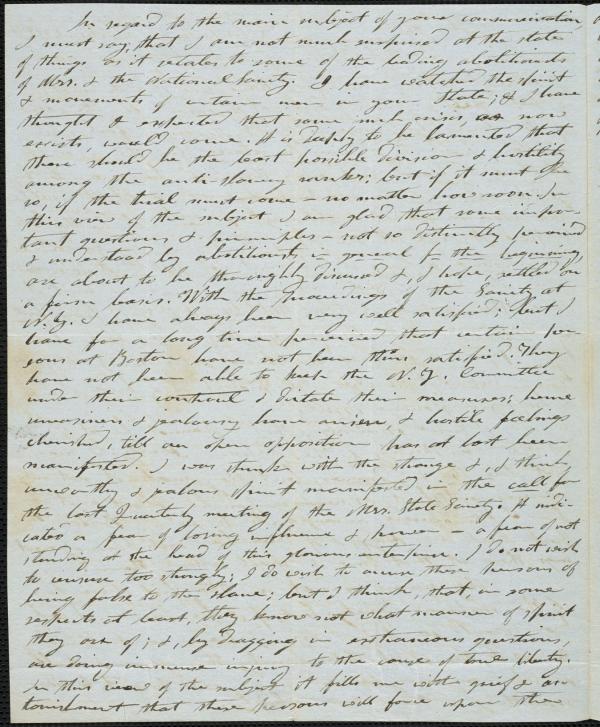 In regard to the main subject of your communication
I must say, that I am not much surprised at the state
of things as it relates to some of the leading abolitionists
of Mrs. & the National Society. I have watched the spirit
& movements of certain men in your State; & I have
thought & expected that some such crisis, as now
exists, would come. It is deeply to be lamented that
there should be the least possible division & hostility
among the anti-slavery ranks; but if it must be
so, if the trial must come – no matter how soon. In
this view of the subject I am glad that some impor-
tant questions & principles – not so distinctly perceived
& understood by abolitionists in general in the beginning,
are about to be thoroughly discussed &, I hope, settled on
a firm basis. With the Proceedings of the Society at
N.Y. I have always been very well satisfied; But I
have for a long time perceived that certain per-
sons at Boston have not been thus satisfied. They
have not been able to keep the N.Y. Committee
under their control & dictate their measures; hence
uneasiness & jealousy have arisen, & hostile feelings
cherished, till an open opposition has at last been
manifested. I was struck with the strange &, I think,
unworthy & jealous spirit manifested in the call for
the last Quarterly meeting of the Mrs. State Society. It indi-
cated a fear of losing influence & power – a fear of not
standing at the head of this glorious enterprise. I do not wish
to censure too strongly; I do wish to accuse these persons of
being false to the slave; but I think, that, in some
respects at least, they know not what manner of spirit
they are of; &, by dragging in extraneous questions,
are doing immense injury to the cause of true liberty.
In this view of the subject it fills me with grief & as-
tonishment that these persons will force upon the